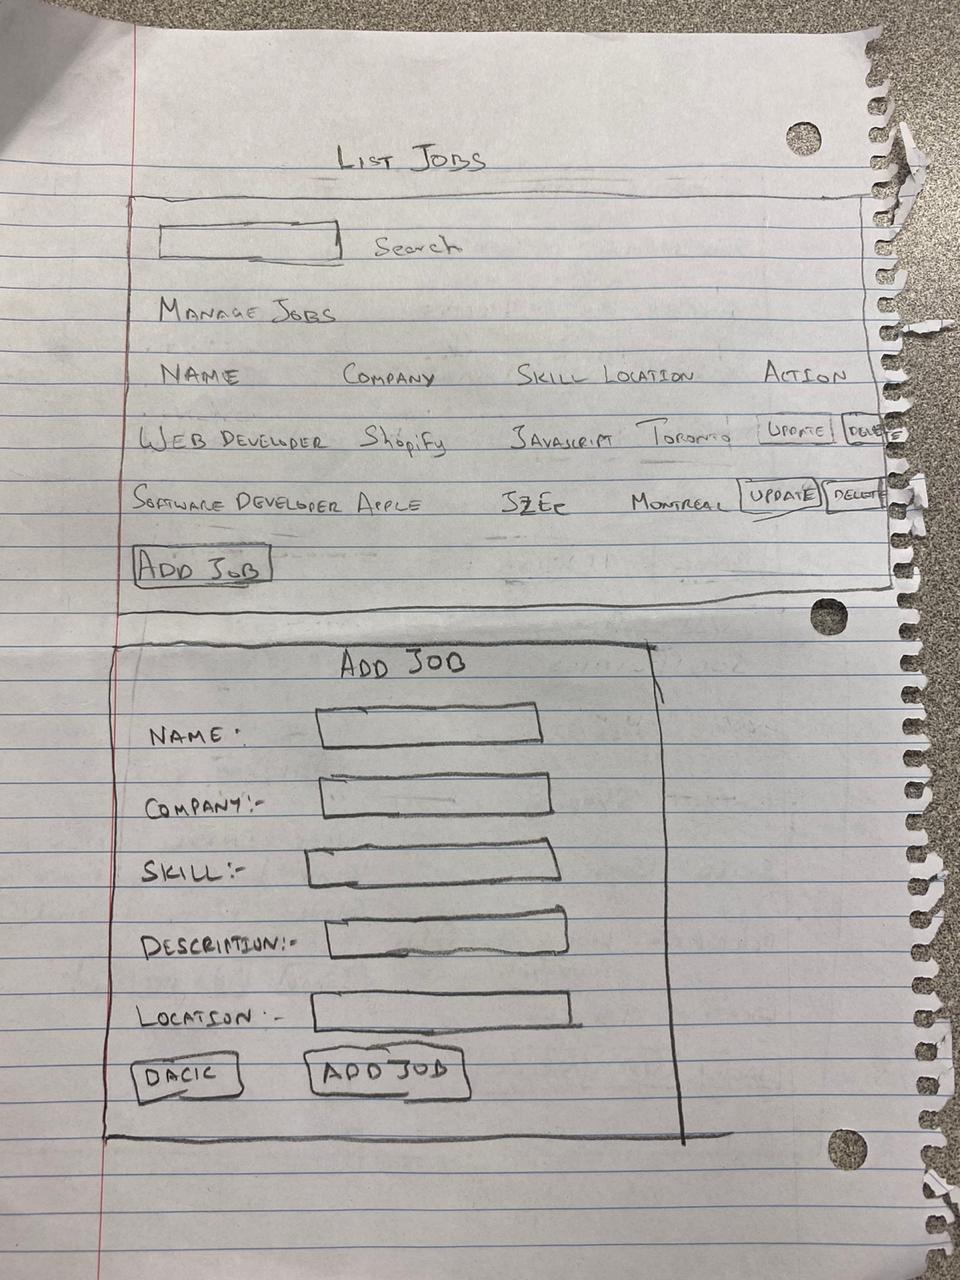 LIST JOBS
Search
MANAGE JOBS
NAME COMPANY SKILL LOCATION ACTION
WEB DEVELOPER Shopify JAVASCRIPT TORONTO UPDATE DELETE
SOFTWARE DEVELOPER APPLE MONTREAL UPDATE DELETE
ADD JOB
ADD JOB
NAME :
COMPANY:-
SKILL:-
DESCRIPTION:-
LOCATION :-
ADD JOB